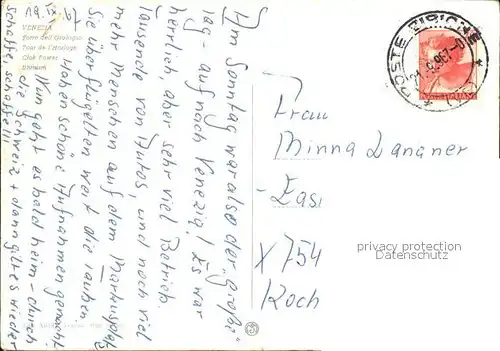 19.IX.67
VENEZIA
Torre dell'Orologio
Tour de l'Horloge
Clok Tower
Uhrturm
Am Sonntag war also der „große"
Tag - auf nach Venezig! Es war
herrlich, aber sehr viel Betrieb.
Tausende von Autos, und noch viel
mehr Menschen auf dem Markusplatz
Sie überflügelten weit die Tauben.
haben schöne Aufnahmen gemacht.
Nun geht es bald heim - durch
die Schweiz + dann gilt es wieder
Schaffe, schaffe!!!
POSTE
ITALIANE
Frau
Minna Dananer
X 754
Koch
privacy protection
watermark